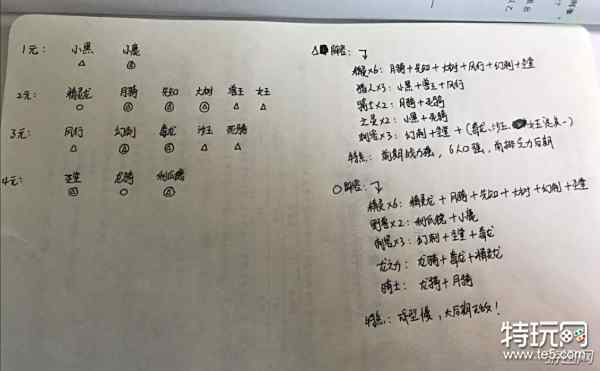 1元： 小黑 小鹿
2元： 精灵龙 月骑 先知 大树 兽王 女王
3元： 风行 幻刺 毒龙 沙王 死骑
4元： 圣堂 龙骑 利爪德
△ 阵容：
精灵×6：月骑+先知+大树+风行+幻刺+圣堂
猎人×3：小黑+兽王+风行
骑士×2：月骑+死骑
亡灵×2：小黑+死骑
刺客×3：幻刺+圣堂+(毒龙、沙王、女王选其一)
特点：前期战力强，6人口强，
○阵容：
精灵×6：精灵龙+月骑+先知+大树+幻刺+圣堂
×2：利爪德+小鹿
刺客×3：幻刺+圣堂+毒龙
龙之力：龙骑+毒龙+精灵龙
骑士：龙骑+月骑
特点：成型慢，大后期无敌！
特玩网
www.te5.com